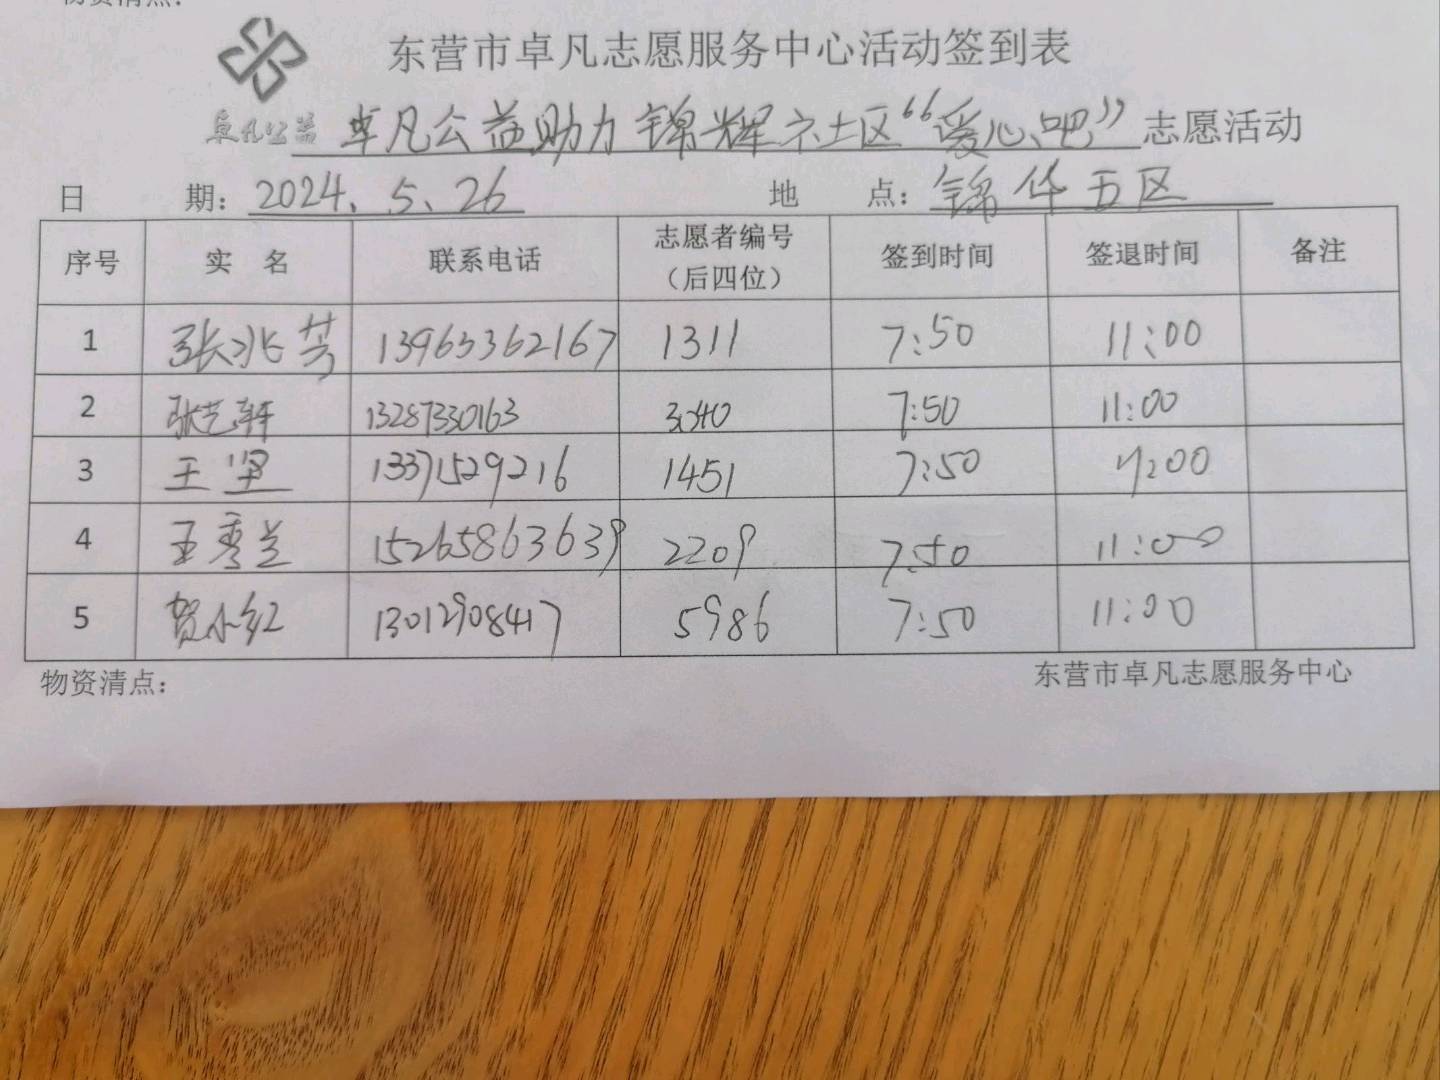 物资清点：
东营市卓凡志愿服务中心活动签到表
卓凡公益 卓凡公益助力锦辉社区“爱心吧”志愿活动
日 期：2024、5、26 地 点：锦华五区
序号 实 名 联系电话 志愿者编号（后四位） 签到时间 签退时间 备注
1 张兆芳 13963362167 1311 7:50 11:00
2 张艺轩 13287330163 7:50 11:00
3 王坚 13371529216 1451 7:50 11:00
4 王秀兰 15265863639 2209 7:50 11:00
5 贺小红 13012908417 5986 7:50 11:00
物资清点： 东营市卓凡志愿服务中心